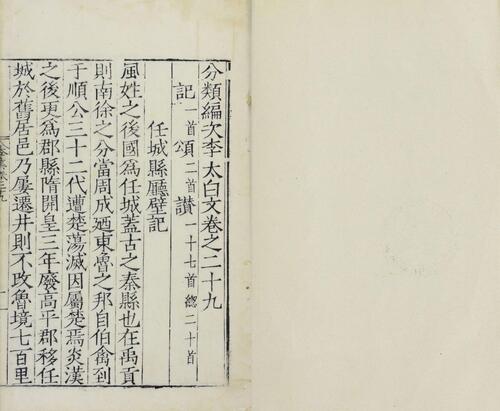 分類編次李太白文卷之二十九
記一首頌二首讃一十七首總二十首
任城縣廳壁記
風姓之後國爲任城蓋古之秦縣也在禹貢
則南徐之分當周成廼東魯之邦自伯禽到
于順公三十二代遭楚蕩滅因屬楚焉炎漢
之後更爲郡縣隋開皇三年廢高平郡移任
城於舊居邑乃屢遷井則不改魯境七百里